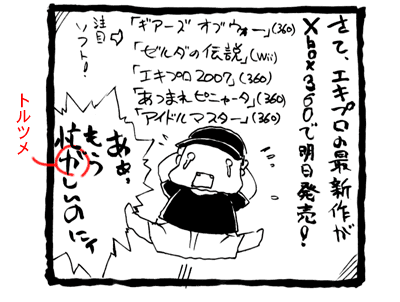 さて、エキプロの最新作が
Xbox360で明日発売!
「ギアーズ オブ ウォー」(360)
「ゼルダの伝説」(Wii)
「エキプロ2007」(360)
「あつまれピニャータ」(360)
「アイドルマスター」(360)
注目
ソフト!
あぁ、
もう
忙がしいのにィ
トルツメ